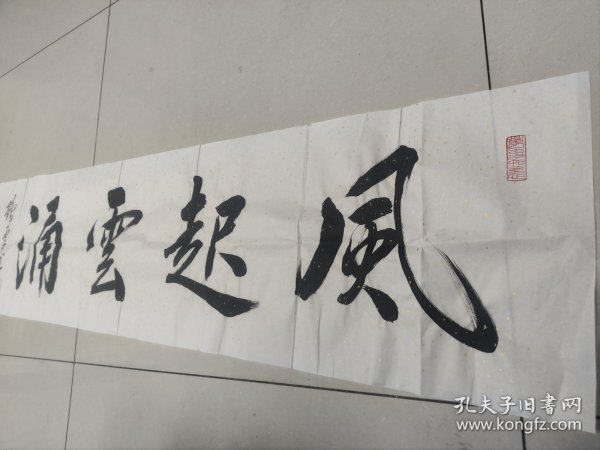 風起雲涌
孔夫子旧書网
www.kongfz.com